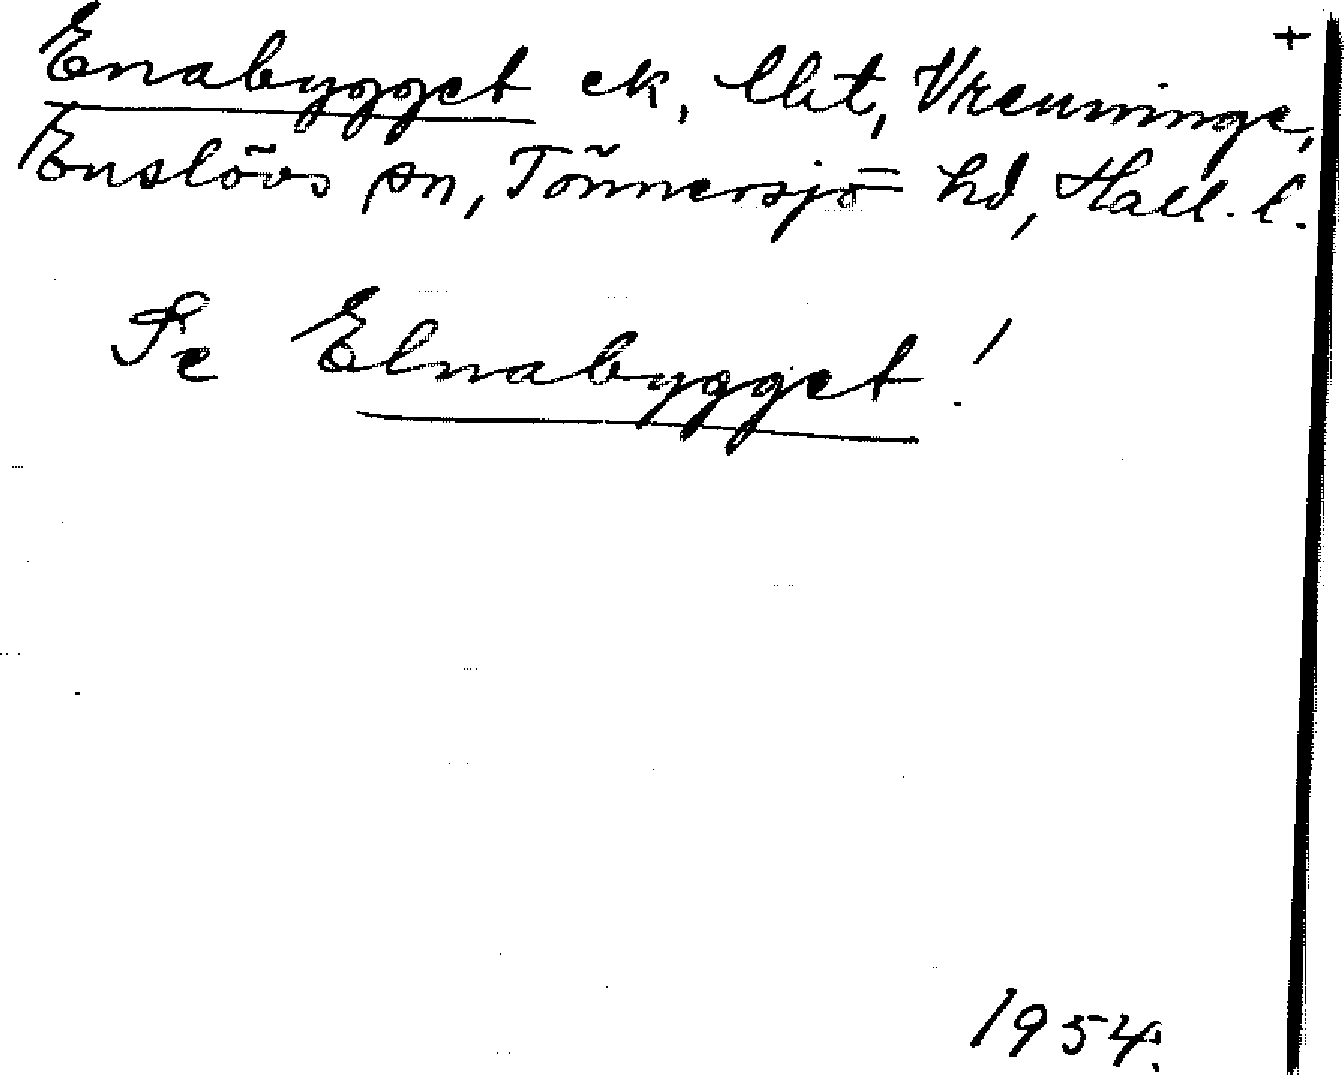 +
Enabygget ek, lht, Vrenninge,
Enslövs sn, Tönnersjö hd, Hall. l.
Se Elnabygget!
1954.